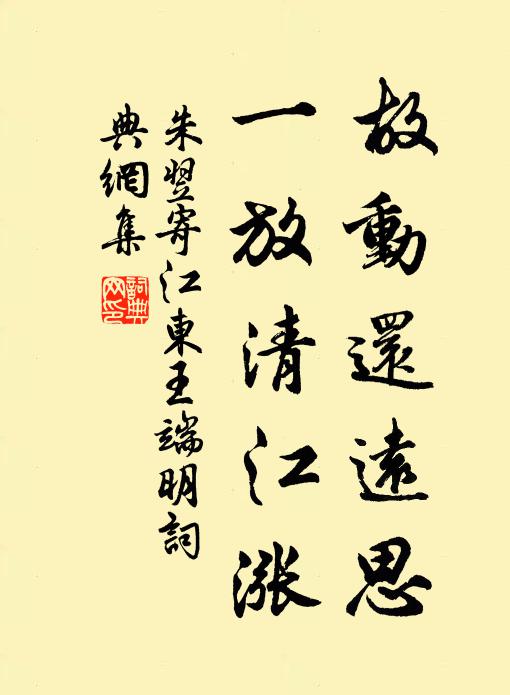 故動還遠思
一放清江漲
朱翌寄江東王端明詞
典網集
詞典網印